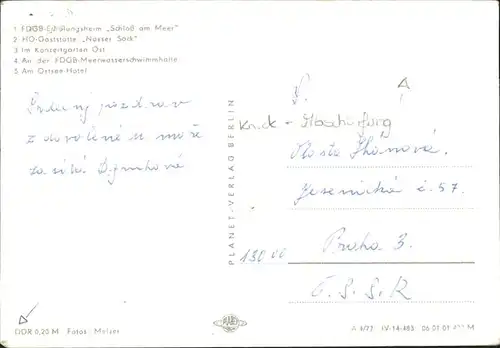 1 FDGB-Erholungsheim „Schloß am Meer"
2 HO-Gaststätte „Nasser Sack"
3 Im Konzertgarten Ost
4 An der FDGB-Meerwasserschwimmhalle
5 Am Ostsee-Hotel
Srdečný pozdrav
z dovolené u moře
zasílá
PLANET-VERLAG BERLIN
S.
Jesenická č. 57.
130 00
Praha 3.
Č. S. S. R
DDR 0,25 M Fotos: Melzer
PLANET
IV-14-483 06 01 01 M